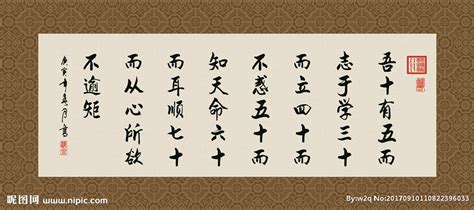 吾十有五而
志于学三十
而立四十而
不惑五十而
知天命六十
而耳顺七十
而从心所欲
不逾矩
庚寅年
昵图网 www.nipic.com
By:w2q No:20170910110822396033